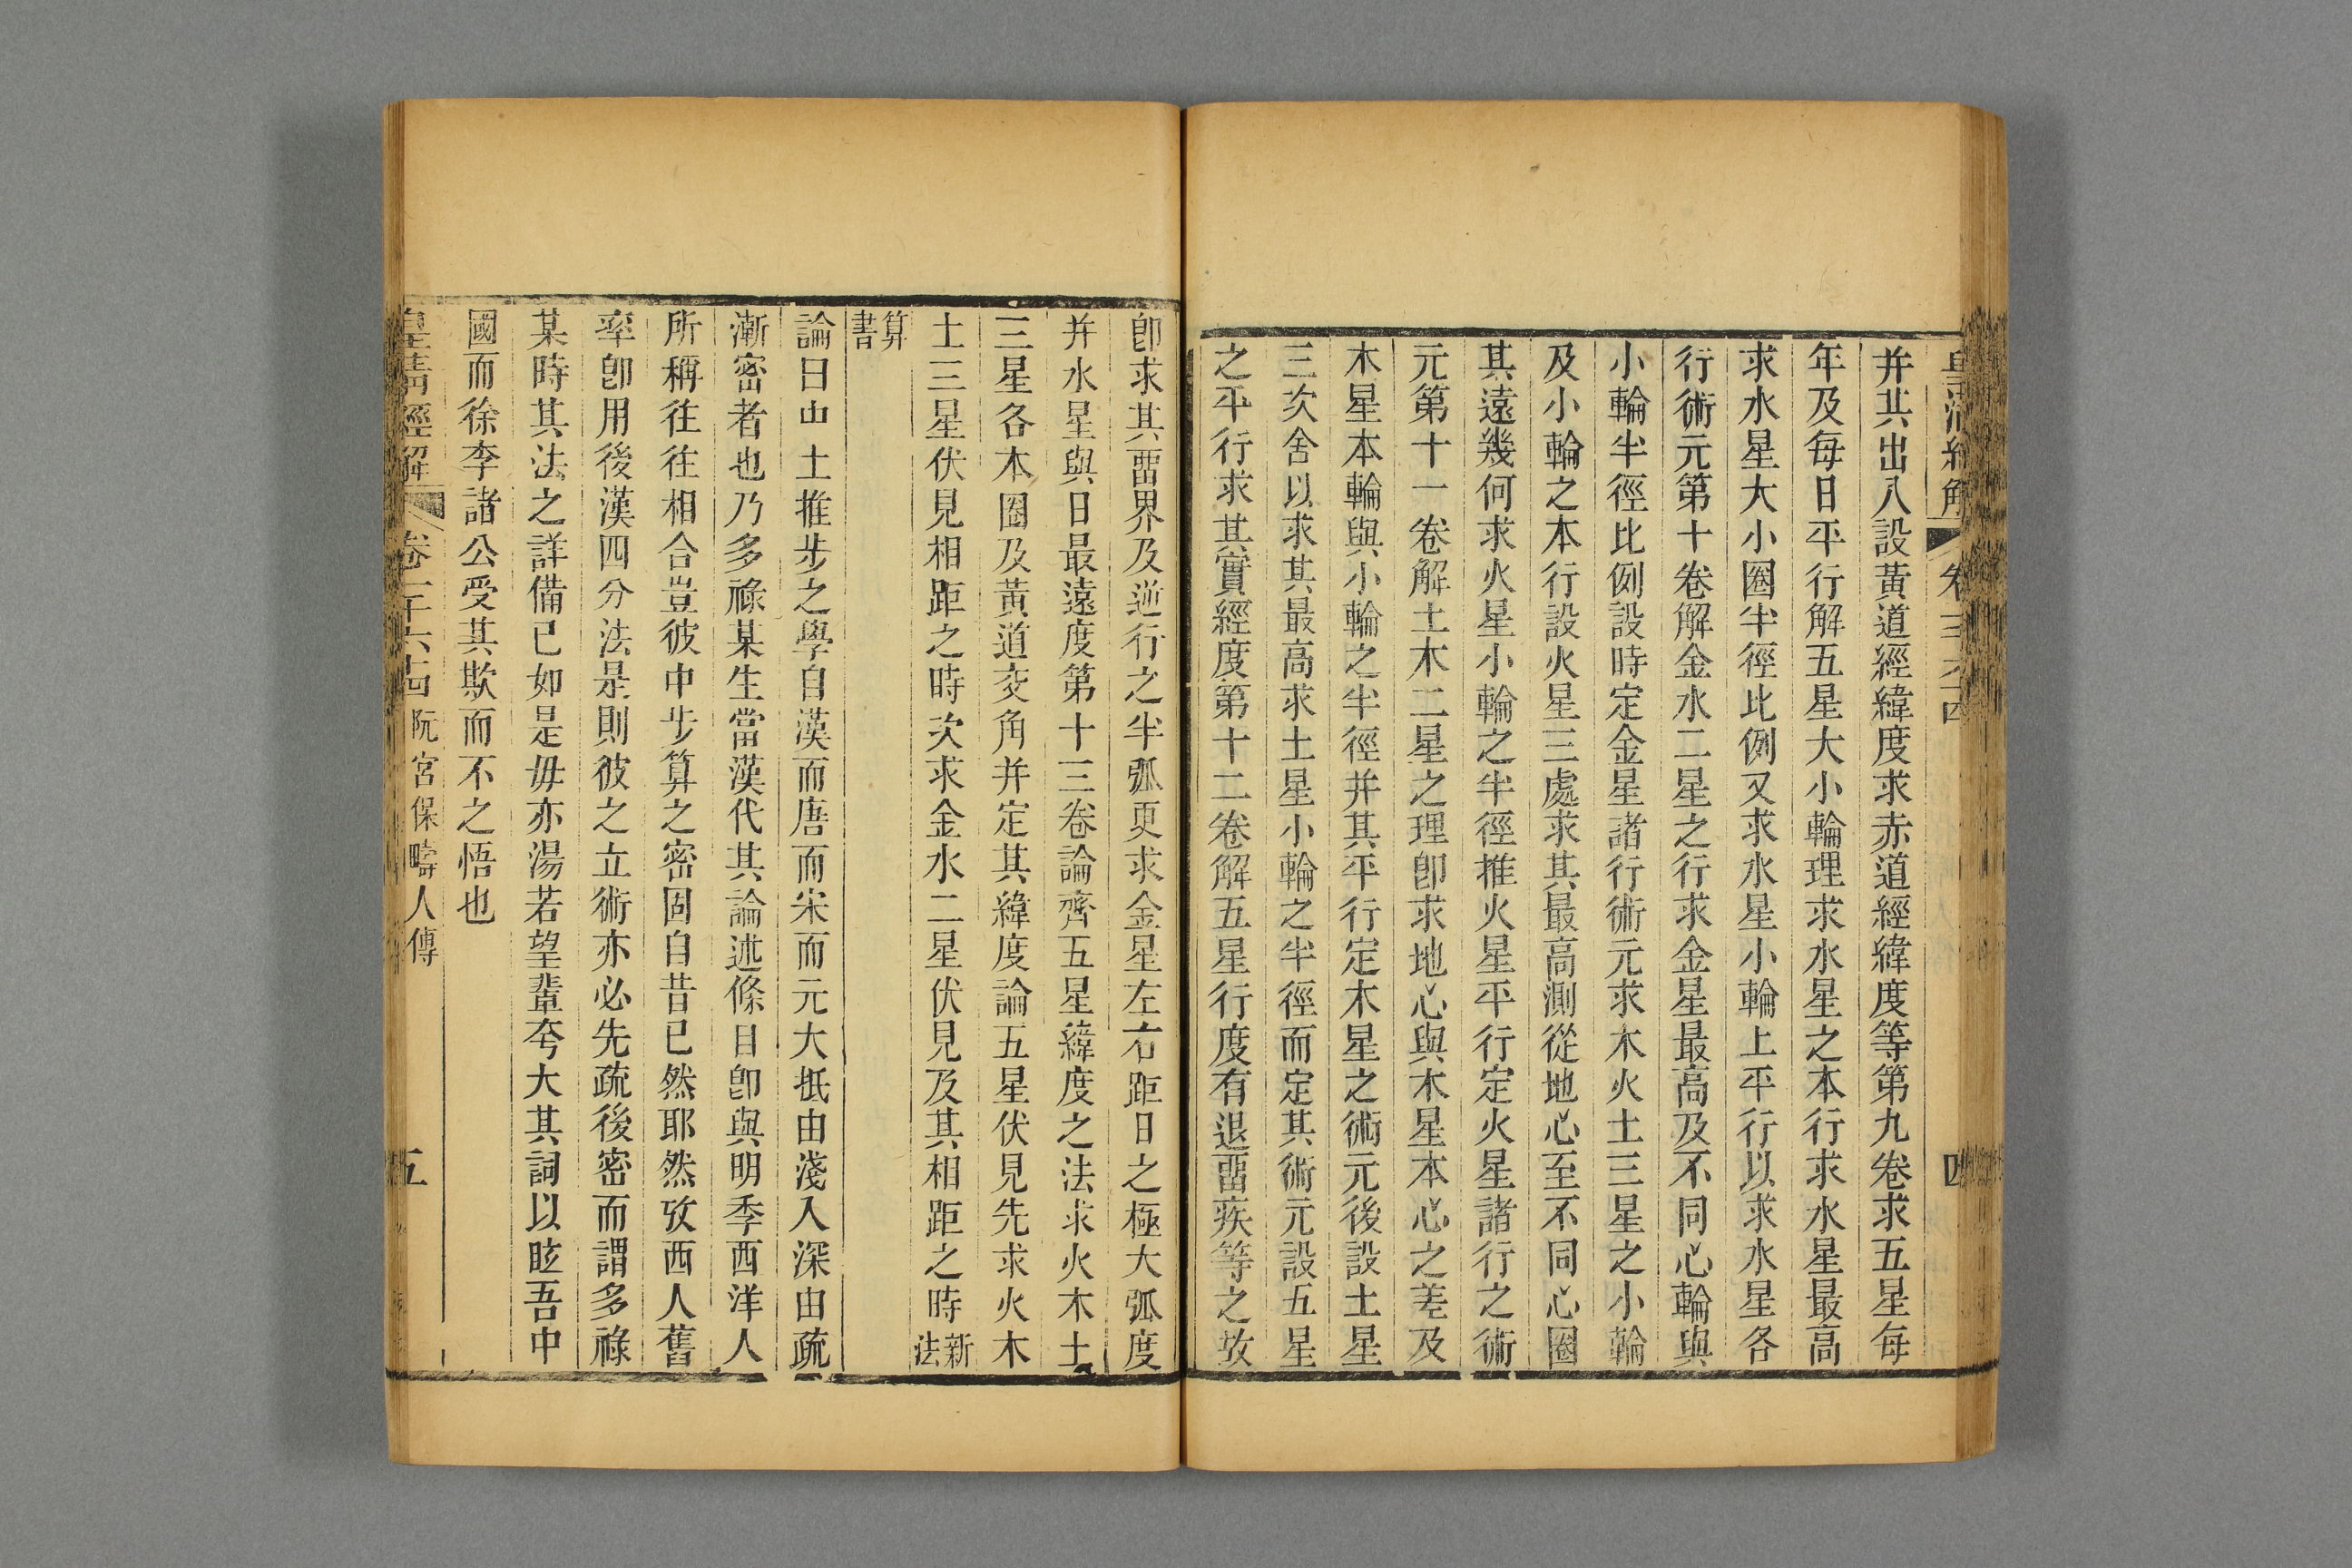 并其出入設黃道經緯度求赤道經緯度等第九卷求五星每
年及每日平行解五星大小輪理求水星之本行求水星最高
求水星大小圈半徑比例又求水星小輪上平行以求水星各
行術元第十卷解金水二星之行求金星最高及不同心輪與
小輪半徑比例設時定金星諸行術元求木火土三星之小輪
及小輪之本行設火星三處求其最高測從地心至不同心圈
其遠幾何求火星小輪之半徑推火星平行定火星諸行之術
元第十一卷解土木二星之理卽求地心與木星本心之差及
木星本輪與小輪之半徑并其平行定木星之術元後設土星
三次舍以求其最高求土星小輪之半徑而定其術元設五星
之平行求其實經度第十二卷解五星行度有退畱疾等之故
卽求其畱界及逆行之半弧更求金星左右距日之極大弧度
并水星與日最遠度第十三卷論齊五星緯度之法求火木土
三星各本圈及黃道交角并定其緯度論五星伏見先求火木
土三星伏見相距之時次求金水二星伏見及其相距之時新法
算書
論曰中土推步之學自漢而唐而宋而元大抵由淺入深由疏
漸密者也乃多祿某生當漢代其論述條目卽與明季西洋人
所稱往往相合豈彼中步算之密固自昔已然耶然攷西人舊
率卽用後漢四分法是則彼之立術亦必先疏後密而謂多祿
某時其法之詳備已如是毋亦湯若望輩夸大其詞以眩吾中
國而徐李諸公受其欺而不之悟也
皇清經解 卷一千六十四 阮宮保疇人傳 五